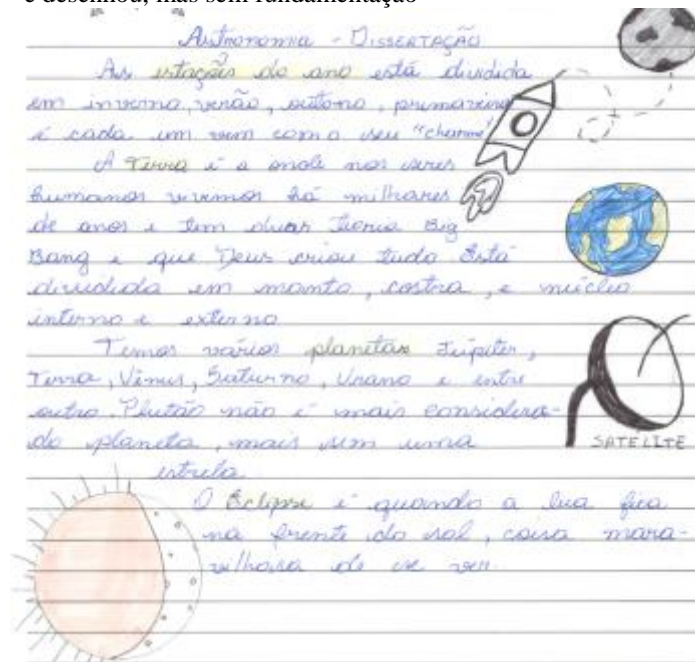 e desenhou, mas sem fundamentação
Astronomia - DISSERTAÇÃO
As estações do ano está dividida
em inverno, verão, outono, primavera
e cada um vem com o seu "charme"
A Terra é a onde nos seres
humanos vivemos há milhares
de anos e tem duas Teoria Big
Bang e que Deus criou tudo Está
dividida em manto, costra, e núcleo
interno e externo
Temos vários planetas Júpiter,
Terra, Vênus, Saturno, Urano e entre
outro. Plutão não é mais considera-
do planeta, mais sim uma
SATÉLITE
estrela
O Eclipse é quando a lua fica
na frente do sol, coisa mara-
vilhosa de se ver.